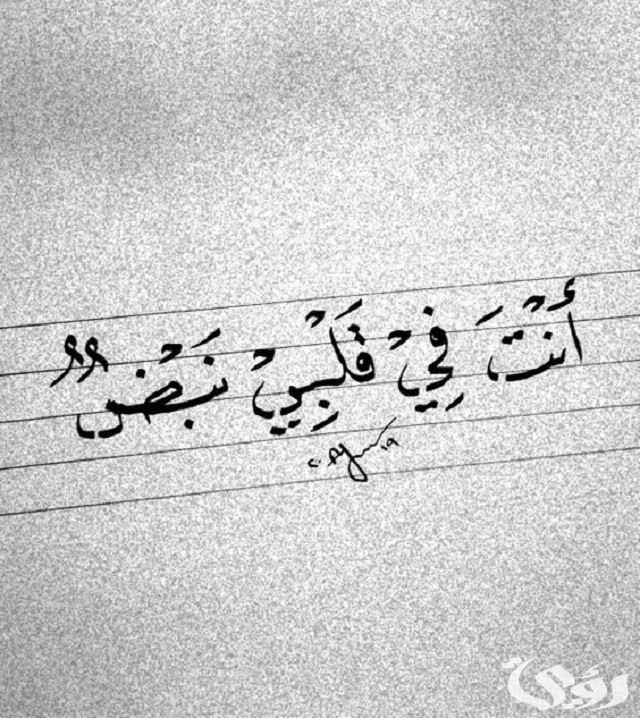 أَنْتَ فِيْ قَلْبِيْ نَبَْضٌ
رؤى